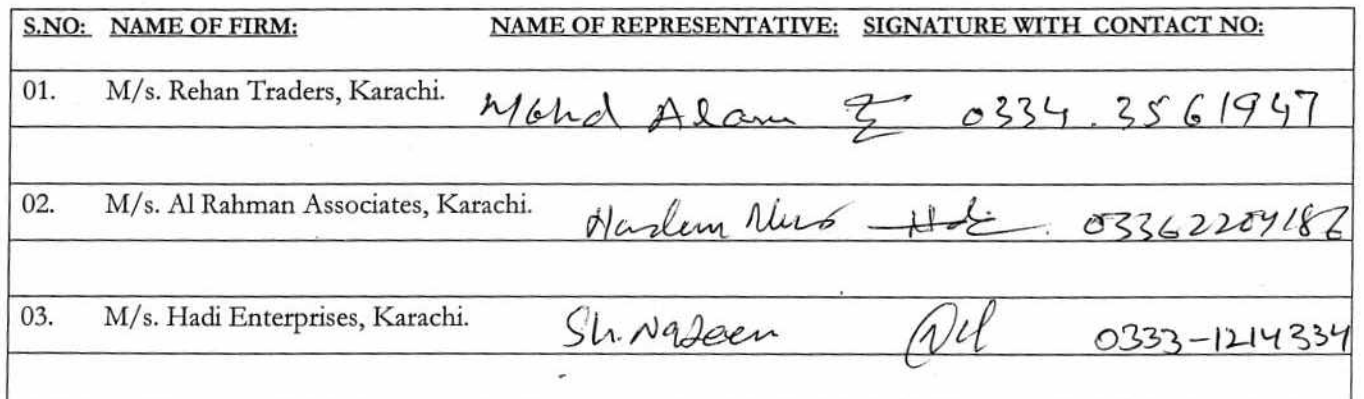 S.NO: NAME OF FIRM: NAME OF REPRESENTATIVE: SIGNATURE WITH CONTACT NO:
01. M/s. Rehan Traders, Karachi. Mohd Alam 0334.3561947
02. M/s. Al Rahman Associates, Karachi.
03. M/s. Hadi Enterprises, Karachi. Sh. 0333-1214334